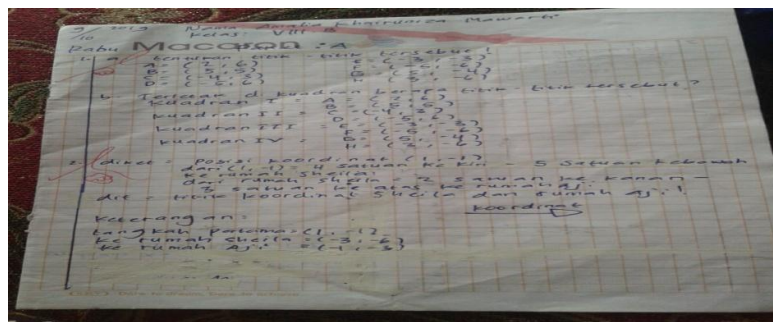 9/10 2019 Nama: Amalia Khairunisa Mawarni
Kelas: VIII B
Rabu Macaron : A
1. a. tentukan titik - titik tersebut!
A = (2, 6) E = (-3, -3)
B = (5, 5) F = (-5, -6)
C = (-4, 3) G = (5, -4)
D = (-5, 6) H = (3, -6)
b. Terletak di kuadran berapa titik-titik tersebut?
Kuadran I = A = (2, 6)
B = (5, 5)
kuadran II = C = (-4, 3)
D = (-5, 6)
kuadran III = E = (-3, -3)
F = (-5, -6)
kuadran IV = G = (5, -4)
H = (3, -6)
2. diket = Posisi koordinat (1, -1)
dari (1, -1) 4 satuan ke kiri - 5 satuan kebawah
ke rumah sheila.
dari rumah sheila = 2 satuan ke kanan -
3 satuan ke atas ke rumah Aj.
dit = titik koordinat Sheila dan rumah Aj.!
koordinat
Keterangan:
langkah pertama = (1, -1)
ke rumah sheila = (-3, -6)
ke rumah Aj. = (-1, -3)